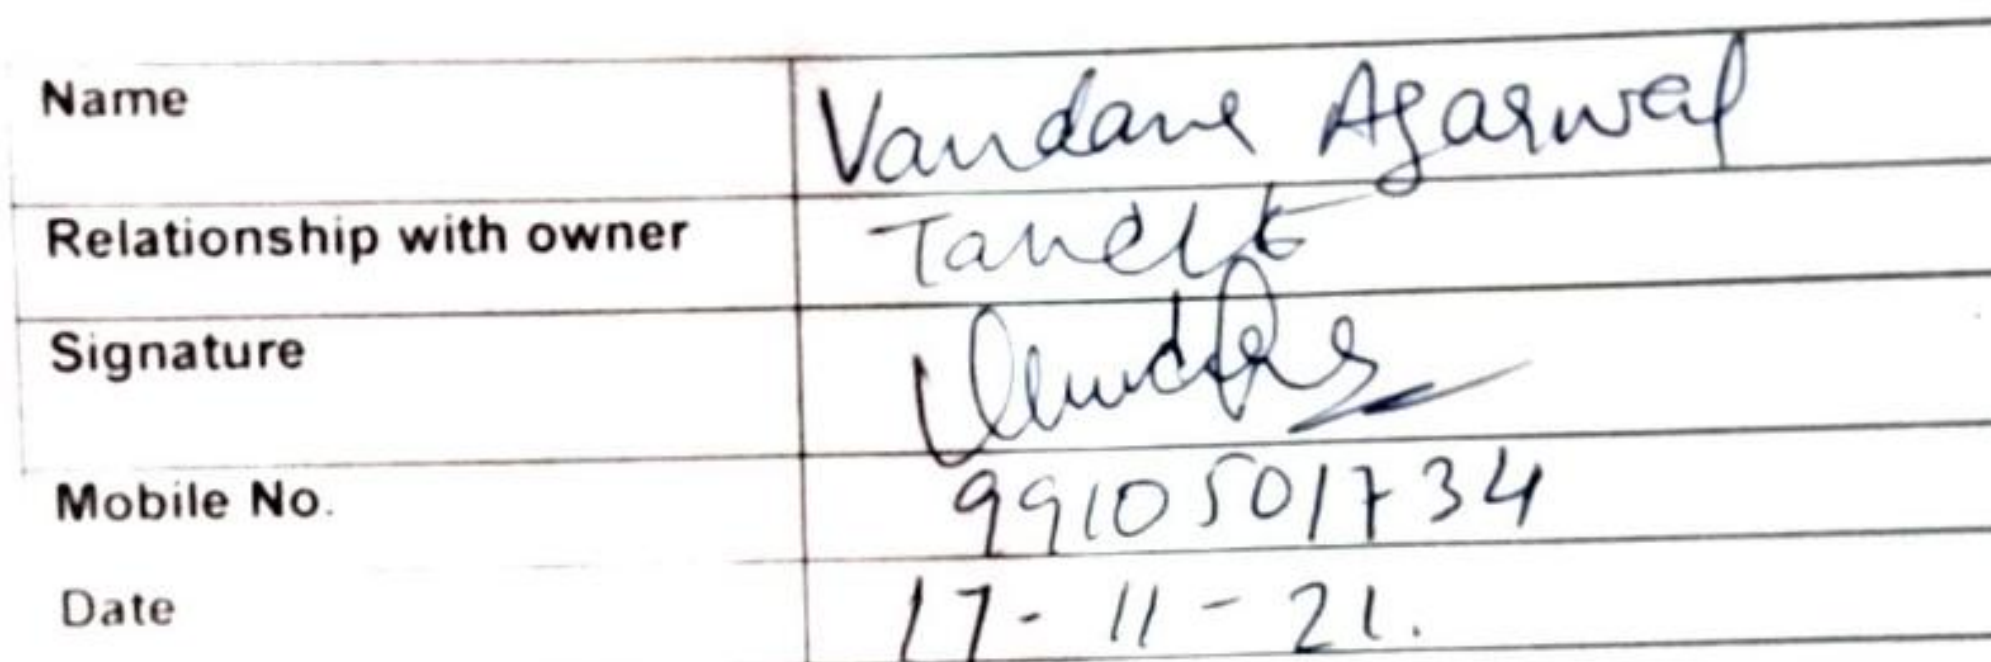 Name Vandana Agarwal
Relationship with owner
Signature
Mobile No. 9910501734
Date 17-11-21.